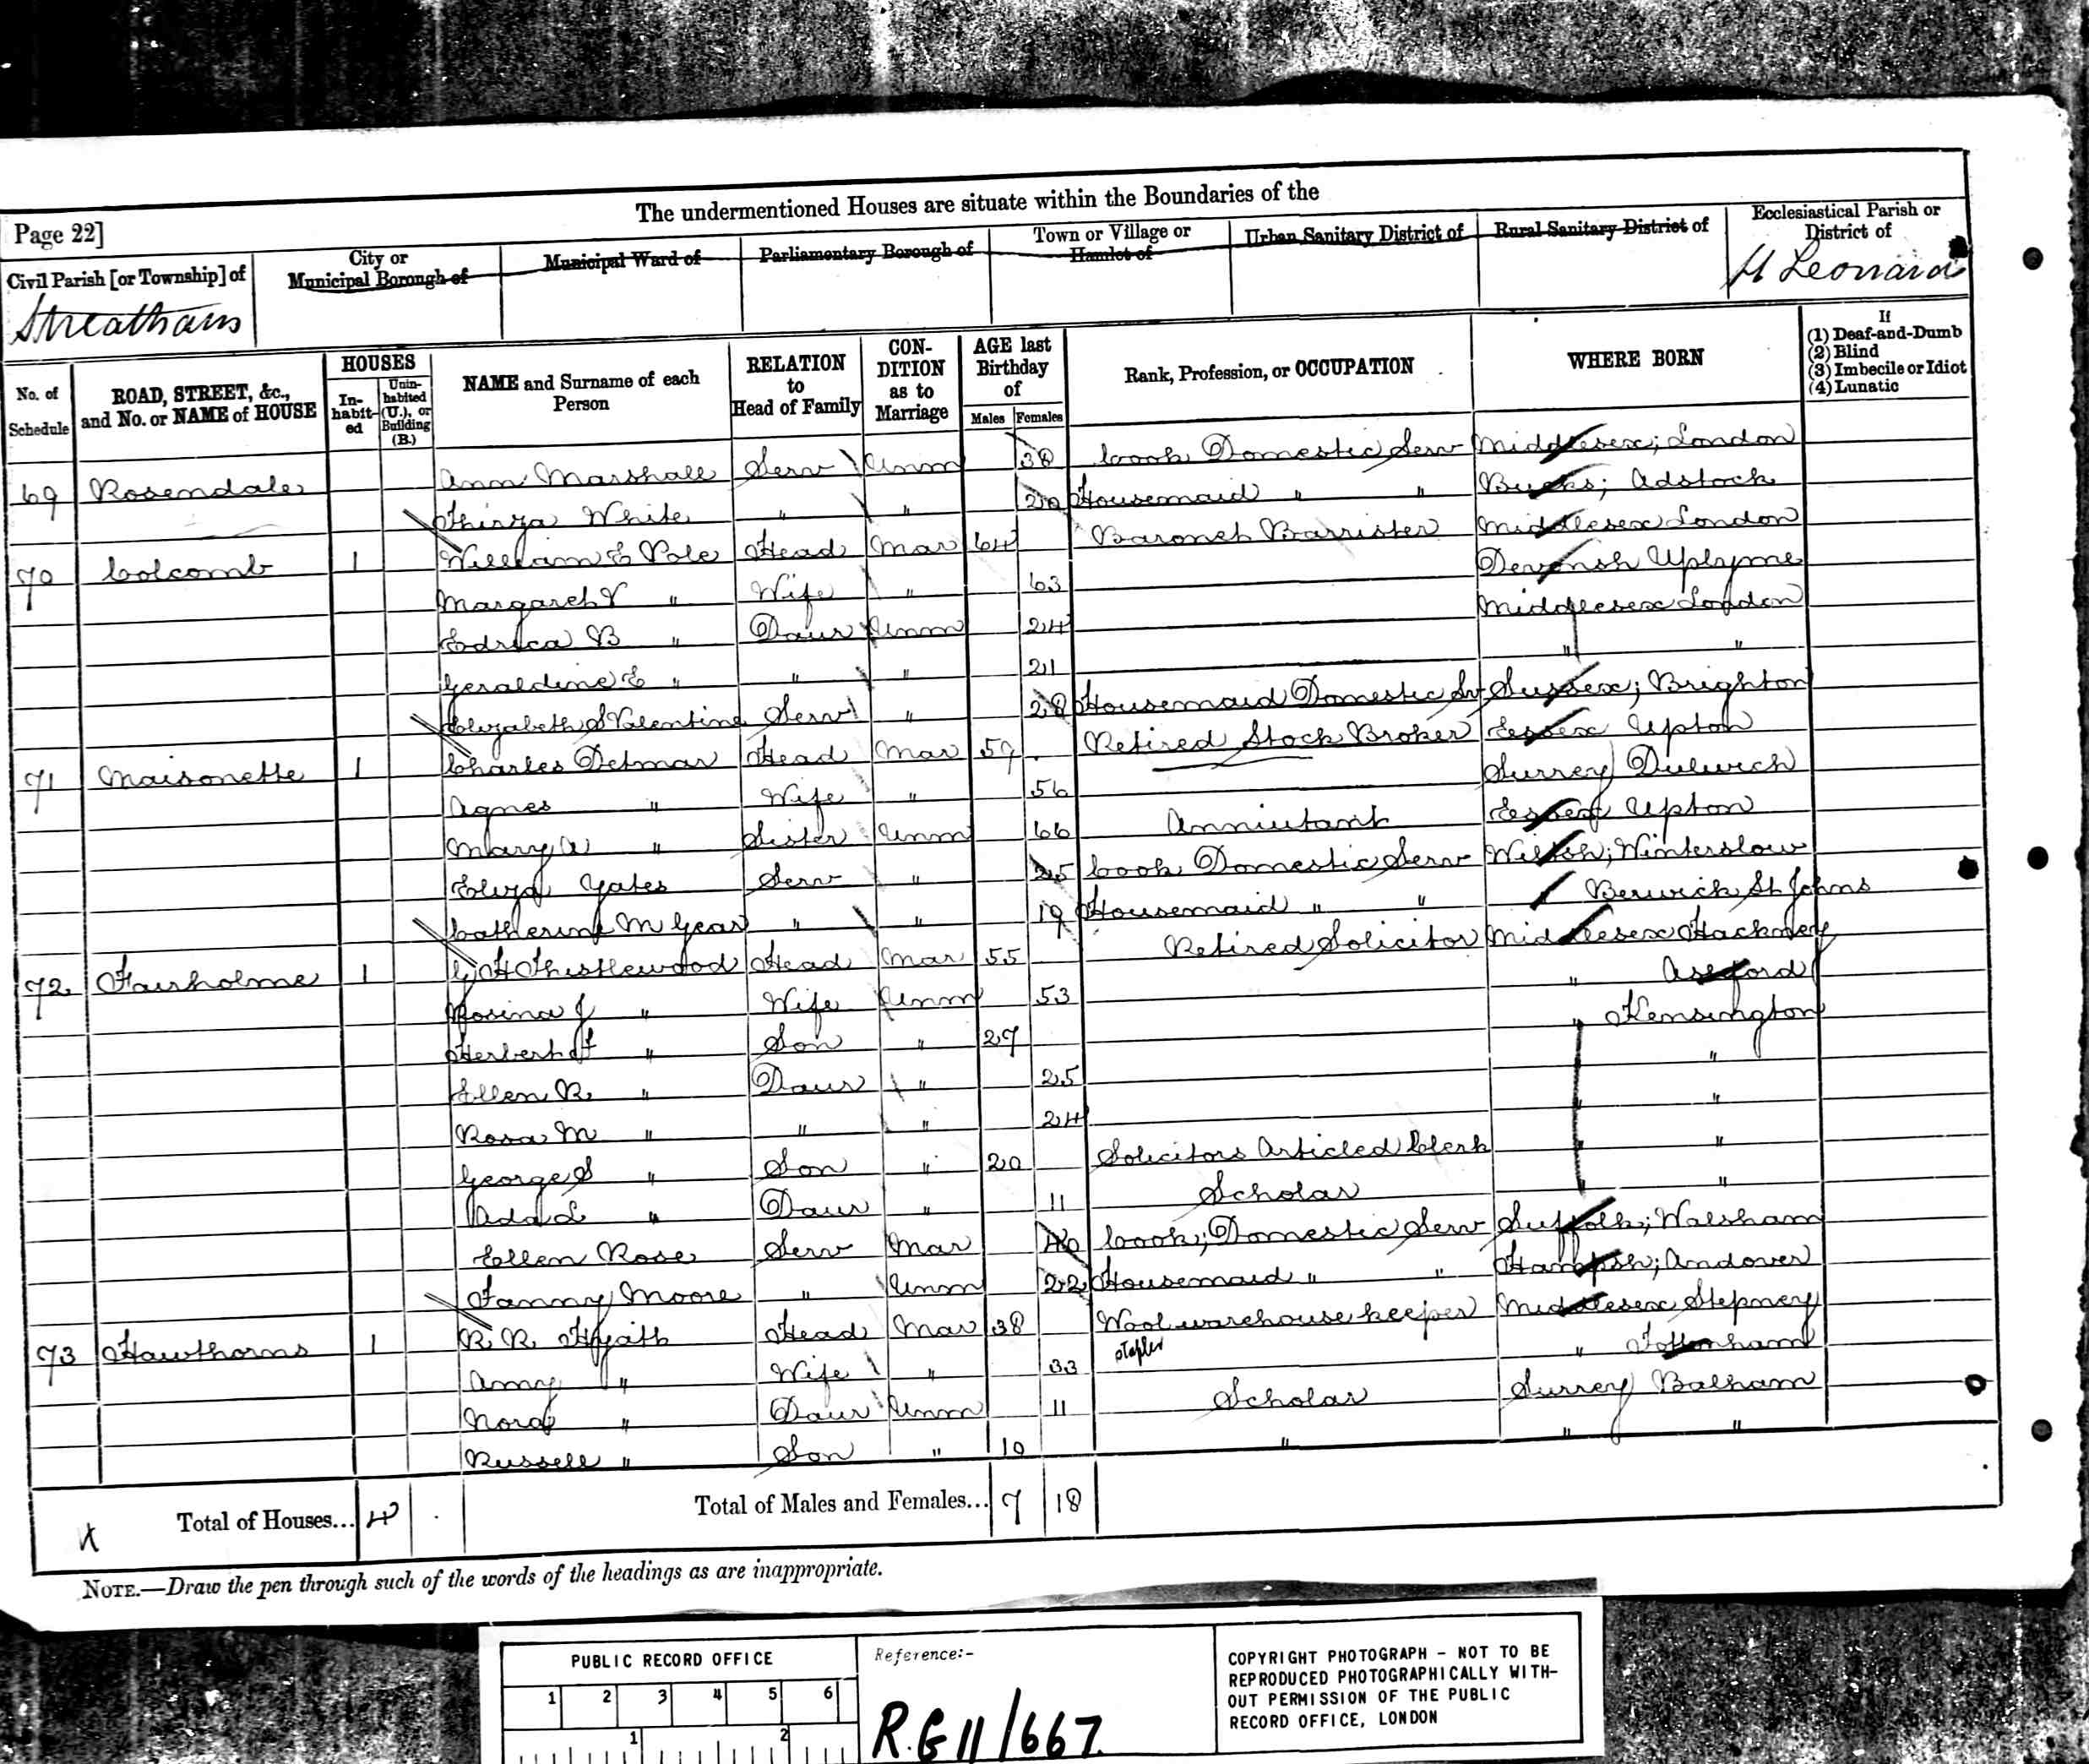 The undermentioned Houses are situate within the Boundaries of the
Page 22]
Civil Parish [or Township] of
Streatham
City or Municipal Borough of
Municipal Ward of
Parliamentary Borough of
Town or Village or Hamlet of
Urban Sanitary District of
Rural Sanitary District of
Ecclesiastical Parish or District of
St Leonard
No. of Schedule
ROAD, STREET, &c., and No. or NAME of HOUSE
HOUSES
In-habit-ed
Unin-habited (U.), or Building (B.)
NAME and Surname of each Person
RELATION to Head of Family
CON-DITION as to Marriage
AGE last Birthday of
Males Females
Rank, Profession, or OCCUPATION
WHERE BORN
If
(1) Deaf-and-Dumb
(2) Blind
(3) Imbecile or Idiot
(4) Lunatic
69 Rosendale Ann Marshall Serv Unm 38 Cook Domestic Serv Middlesex; London
Thirza White " " 20 Housemaid " " Bucks; Adstock
70 Colcomb 1 William E Pole Head Mar 64 Baronet Barrister Middlesex London
Margaret V " Wife " 63 Devonsh Uplyme
Edrica B " Daur Unm 24 Middlesex London
Geraldine E " " " 21 " "
Elizabeth S Valentine Serv " 28 Housemaid Domestic Sv Sussex; Brighton
71 Maisonette 1 Charles Detmar Head Mar 59 Retired Stock Broker Essex Upton
Agnes " Wife " 56 Surrey Dulwich
Mary A " Sister Unm 66 Anniutant Essex Upton
Eliza Yates Serv " 25 Cook Domestic Serv Wiltsh; Winterslow
Catherine M Gear " " 19 Housemaid " " Berwick St Johns
72 Fairholme 1 G H Thistlewood Head Mar 55 Retired Solicitor Middlesex Hackney
Rosina J " Wife Unm 53 " Ashford
Herbert " Son " 27 " Kensington
Ellen R " Daur " 25 "
Rosa M " " " 24 " "
George S " Son " 20 Solicitors Articled Clerk " "
Ada L " Daur " 11 Scholar " "
Ellen Rose Serv Mar 40 Cook; Domestic Serv Suffolk; Walsham
Fanny Moore " Unm 22 Housemaid " " Hampsh; Andover
73 Hawthorns 1 R. R. Hyatt Head Mar 38 Wool warehouse keeper Middlesex Stepney
stapler
Amy " Wife " 33 " Tottenham
Nora " Daur Unm 11 Scholar Surrey Balham
Russell " Son " 10 " " "
Total of Houses... 4
Total of Males and Females... 7 18
NOTE.—Draw the pen through such of the words of the headings as are inappropriate.
PUBLIC RECORD OFFICE
1 2 3 4 5 6
1 2
Reference:-
R.G 11/667.
COPYRIGHT PHOTOGRAPH - NOT TO BE
REPRODUCED PHOTOGRAPHICALLY WITH-
OUT PERMISSION OF THE PUBLIC
RECORD OFFICE, LONDON